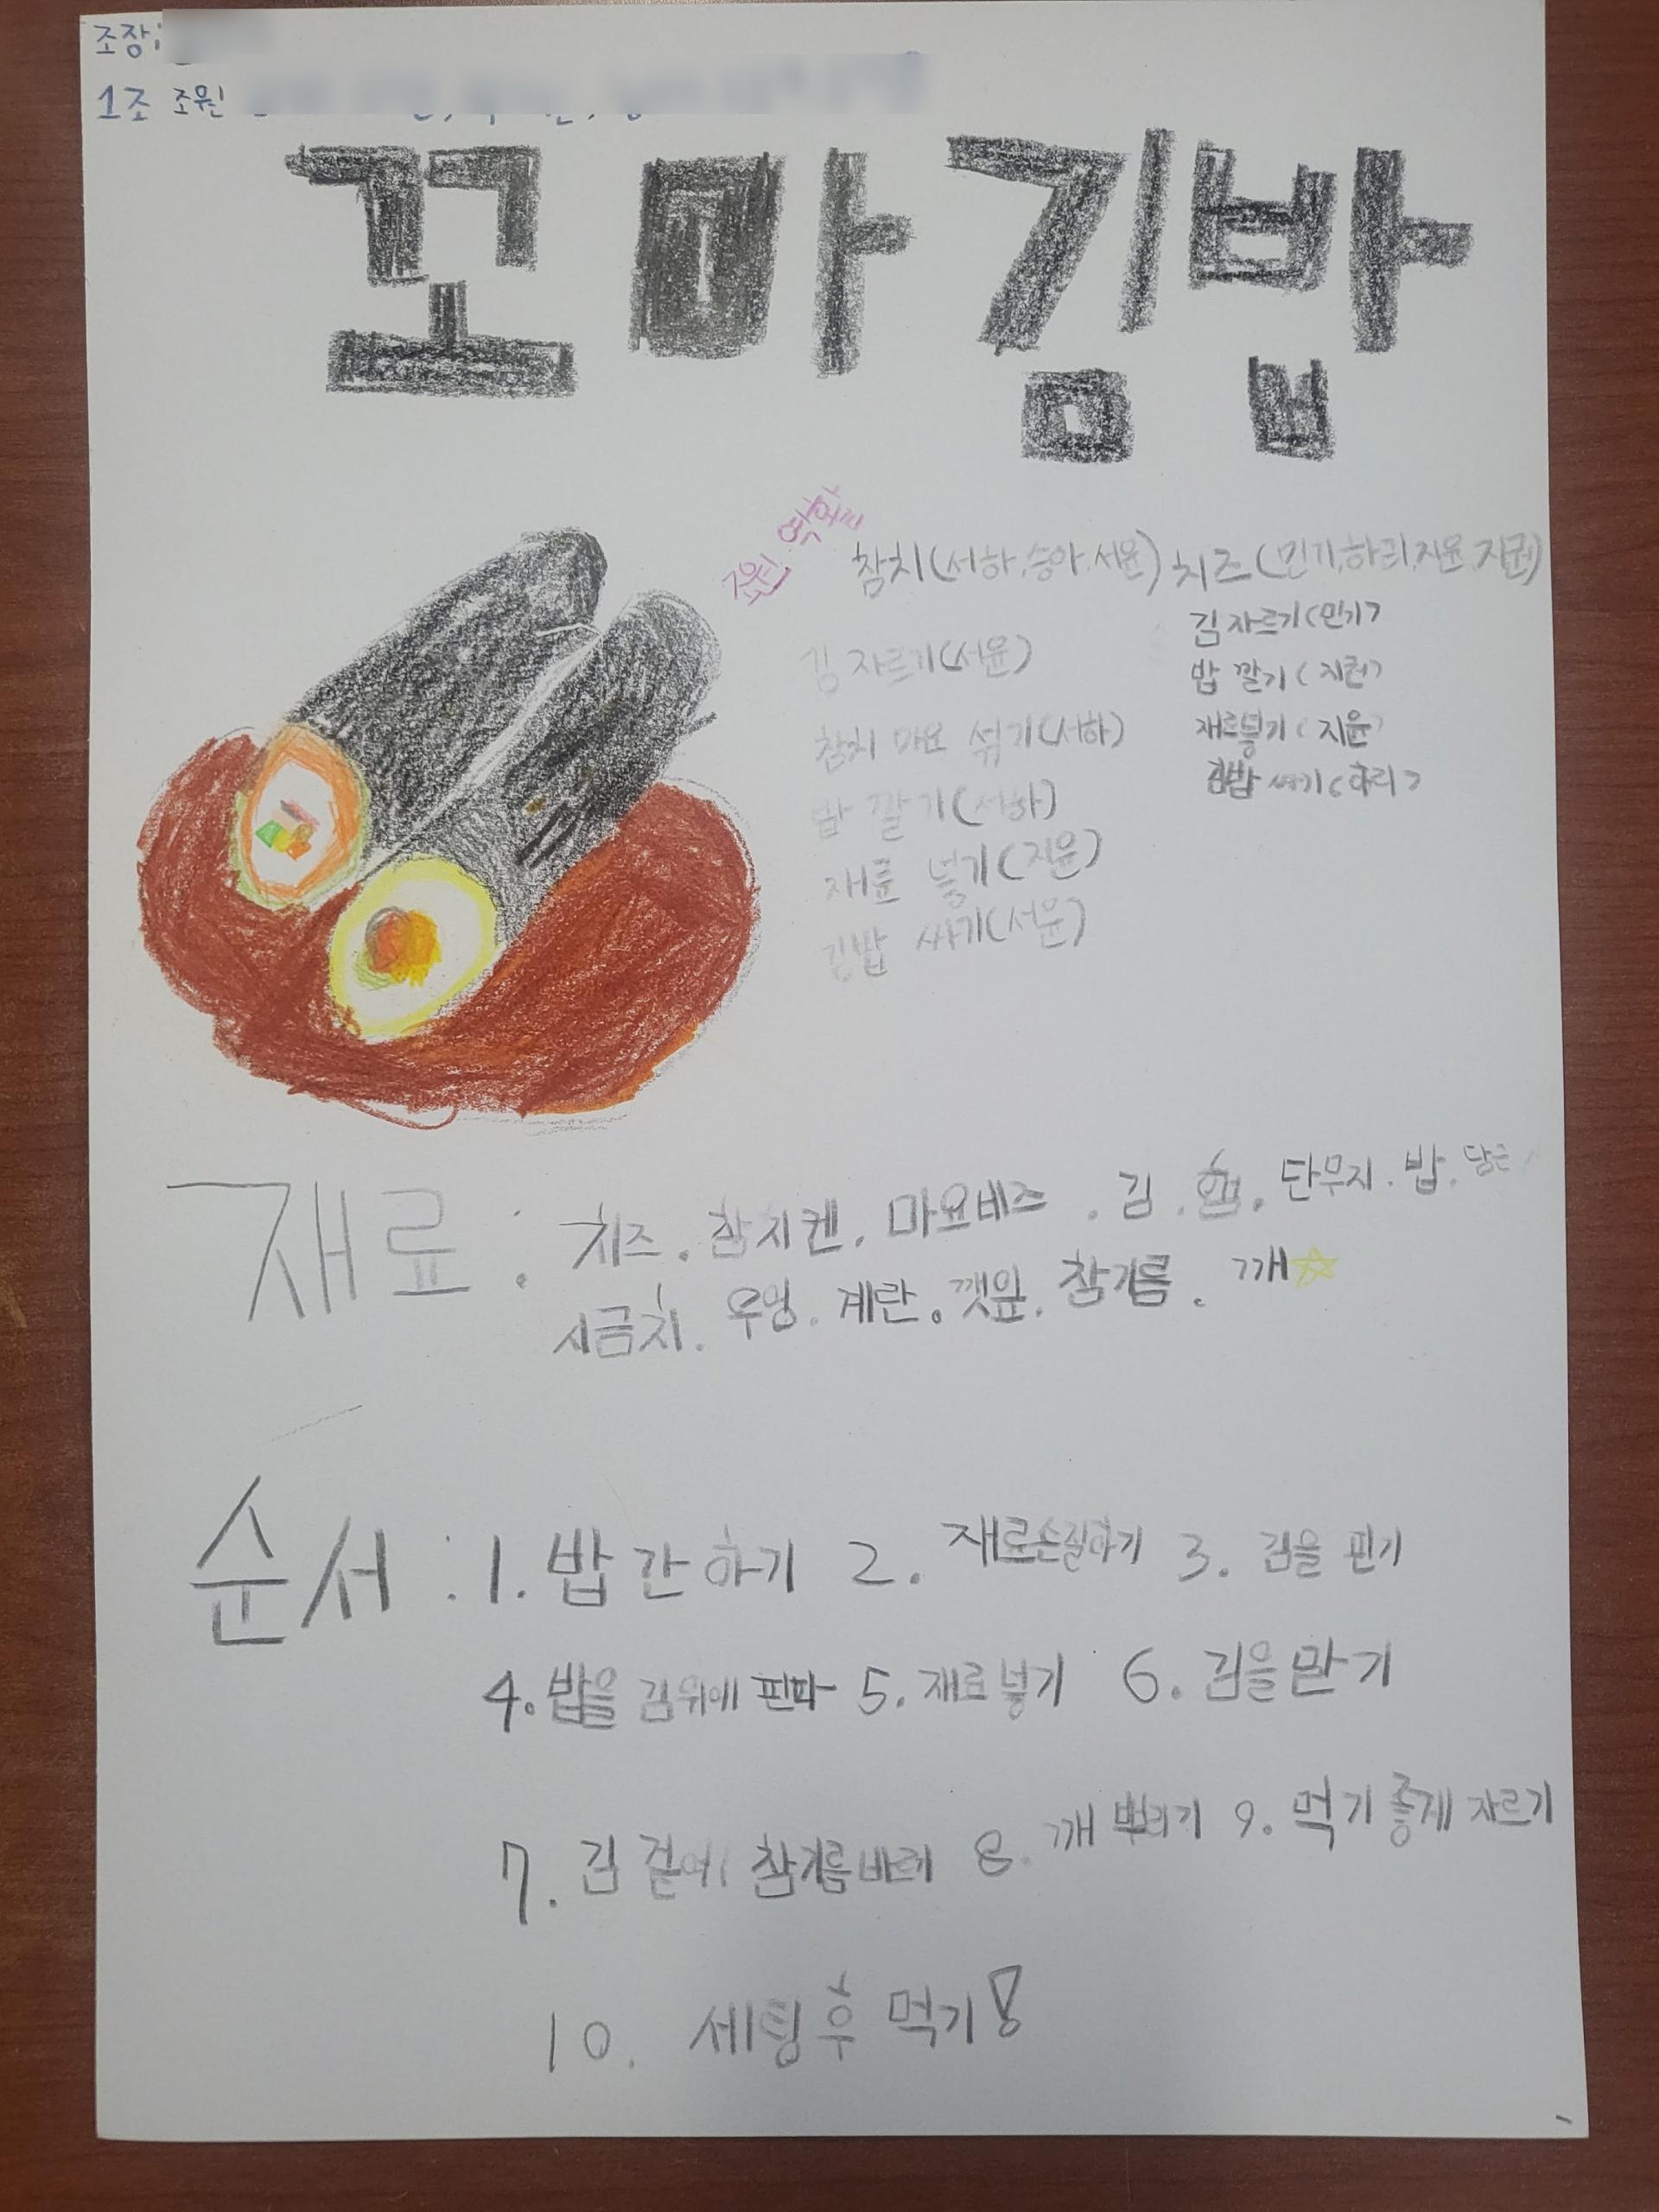 조장:
1조 조원
꼬마김밥
조원 역할
참치(서하,승아,서윤) 치즈(민기,하리,지윤,지권)
김 자르기(서윤)
참치 마요 섞기(서하)
밥 깔기(서하)
재료 넣기(지윤)
김밥 싸기(서윤)
김 자르기(민기)
밥 깔기(지권)
재료넣기(지윤)
김밥 싸기(하리)
재료: 치즈. 참치켄. 마요네즈. 김. 햄. 단무지. 밥. 당근
시금치. 우엉. 계란. 깻잎. 참기름. 깨
순서: 1. 밥 간 하기 2. 재료손질하기 3. 김을 핀기
4. 밥을 김위에 핀다 5. 재료 넣기 6. 김을 만기
7. 김 겉에 참기름바르기 8. 깨 뿌리기 9. 먹기 좋게 자르기
10. 세팅 후 먹기!